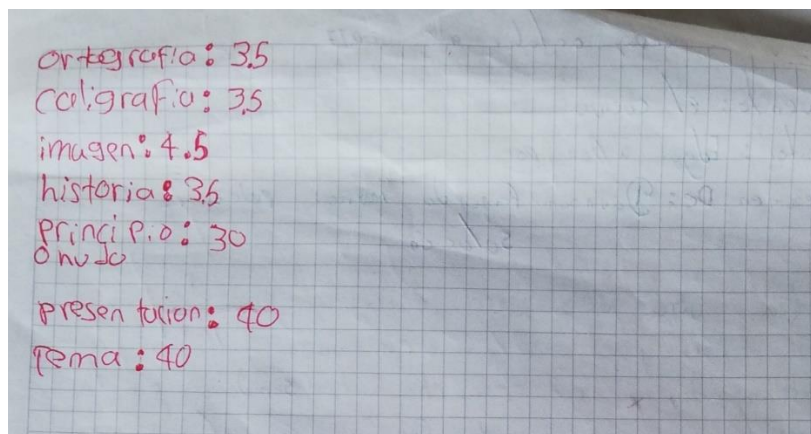 ortografia: 3.5
caligrafia: 3.5
imagen: 4.5
historia: 3.5
principio: 30
o nudo
presentacion: 40
Tema: 40